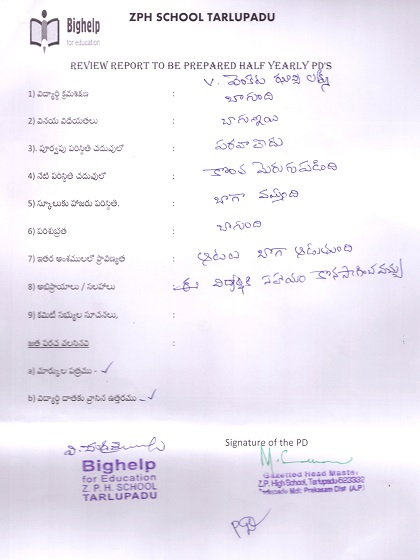 Bighelp
for education
ZPH SCHOOL TARLUPADU
REVIEW REPORT TO BE PREPARED HALF YEARLY PD'S
V. వెంకట ఝాన్సి లక్ష్మి
1) విద్యార్థి క్రమశిక్షణ : బాగుంది
2) వినయ విధేయతలు : బాగున్నాయి
3). పూర్వపు పరిస్థితి చదువులో : పరవాలేదు
4) నేటి పరిస్థితి చదువులో : కొంత మెరుగుపడింది
5) స్కూలుకు హాజరు పరిస్థితి. : బాగా వస్తుంది
6) పరిశుభ్రత : బాగుంది
7) ఇతర అంశములలో ప్రావీణ్యత : ఆటలు బాగా ఆడుతుంది
8) అభిప్రాయాలు / సలహాలు : ఈ విద్యార్థికి సహాయం కొనసాగించవచ్చు
9) కమిటీ సభ్యుల సూచనలు, :
జత పరచ వలసినవి :
a) మార్కుల పత్రము - ✓
b) విద్యార్థి దాతకు వ్రాసిన ఉత్తరము - ✓
Signature of the PD
Bighelp
for Education
Z. P. H. SCHOOL
TARLUPADU
Gazetted Head Master
Z.P. High School, Tarlupadu-523332
Tarlupadu Mdl: Prakasam Dist (A.P.)